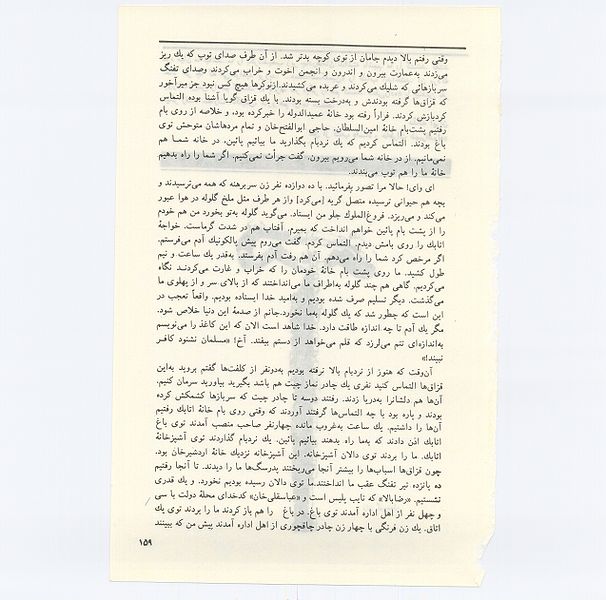 وقتی رفتم بالا دیدم جامان از توی کوچه بدتر شد. از آن طرف صدای توپ که یك ریز
می‌زدند به‌عمارت بیرون و اندرون و انجمن اخوت و خراب می‌کردند وصدای تفنگ
سربازهائی که شلیك می‌کردند و عربده می‌کشیدند.ازنوکرها هیچ کس نبود جز میرآخور
که قزاق‌ها گرفته بودندش و به‌درخت بسته بودند. با یك قزاق گویا آشنا بوده التماس
کردبازش کردند. فراراً رفته بود خانهٔ عمیدالدوله را خبرکرده بود، و خلاصه از روی بام
رفتیم پشت‌بام خانهٔ امین‌السلطان. حاجی ابوالفتح‌خان و تمام مردهاشان متوحش توی
باغ بودند. التماس کردیم که یك نردبام بگذارید ما بیائیم پائین، در خانه شما هم
نمی‌مانیم. از در خانه شما می‌رویم بیرون. گفت جرأت نمی‌کنیم. اگر شما را راه بدهیم
خانهٔ ما را هم توپ می‌بندند.
ای وای! حالا مرا تصور بفرمائید. با ده دوازده نفر زن سربرهنه که همه می‌ترسیدند و
بچه هم حیوانی ترسیده متصل گریه [می‌کرد] واز هر طرف مثل ملخ گلوله در هوا عبور
می‌کند و می‌ریزد. فروغ‌الملوك جلو من ایستاد. می‌گوید گلوله به‌تو بخورد من هم خودم
را از پشت بام پائین خواهم انداخت که بمیرم. آفتاب هم در شدت گرماست. خواجهٔ
اتابك را روی بامش دیدم. التماس کردم. گفت می‌روم پیش بالکونیك آدم می‌فرستم.
اگر مرخص کرد شما را راه می‌دهم. آن هم رفت آدم بفرستد. به‌قدر یك ساعت و نیم
طول کشید. ما روی پشت بام خانهٔ خودمان را که خراب و غارت می‌کردند نگاه
می‌کردیم. گاهی هم چند گلوله به‌اطراف ما می‌انداختند که از بالای سر و از پهلوی ما
می‌گذشت. دیگر تسلیم صرف شده بودیم و به‌امید خدا ایستاده بودیم. واقعاً تعجب در
این است که چطور شد که یك گلوله به‌ما نخورد.جانم از صدمهٔ این دنیا خلاص شود.
مگر یك آدم تا چه اندازه طاقت دارد. خدا شاهد است الان که این کاغذ را می‌نویسم
به‌اندازه‌ای تنم می‌لرزد که قلم می‌خواهد از دستم بیفتد. آخ! «مسلمان نشنود کافر
نبیند!»
آن‌وقت که هنوز از نردبام بالا نرفته بودیم به‌دونفر از کلفت‌ها گفتم بروید به‌این
قزاق‌ها التماس کنید نفری یك چادر نماز چیت هم باشد بگیرید بیاورید سرمان کنیم.
آن‌ها هم دلشانرا به‌دریا زدند. رفتند دوسه تا چادر چیت که سربازها کشمکش کرده
بودند و پاره بود با چه التماس‌ها گرفتند آوردند که وقتی روی بام خانهٔ اتابك رفتیم
آن‌ها را داشتیم. یك ساعت به‌غروب مانده چهارنفر صاحب منصب آمدند توی باغ
اتابك اذن دادند که به‌ما راه بدهند بیائیم پائین. یك نردبام گذاردند توی آشپزخانهٔ
اتابك. ما را بردند توی دالان آشپزخانه. این آشپزخانه نزدیك خانهٔ اردشیرخان بود.
چون قزاق‌ها اسباب‌ها را بیشتر آنجا می‌ریختند پدرسگ‌ها ما را دیدند. تا آنجا رفتیم
ده پانزده تیر تفنگ عقب ما انداختند.ما توی دالان رسیده بودیم نخورد. و یك قدری
نشستیم. «رضابالا» که نایب پلیس است و «عباسقلی‌خان» کدخدای محلهٔ دولت با سی
و چهل نفر از اهل اداره آمدند توی باغ. در باغ را هم باز کردند ما را بردند توی یك
اتاق. یك زن فرنگی با چهار زن چادر چاقچوری از اهل اداره آمدند پیش من که ببینند
۱۵۹